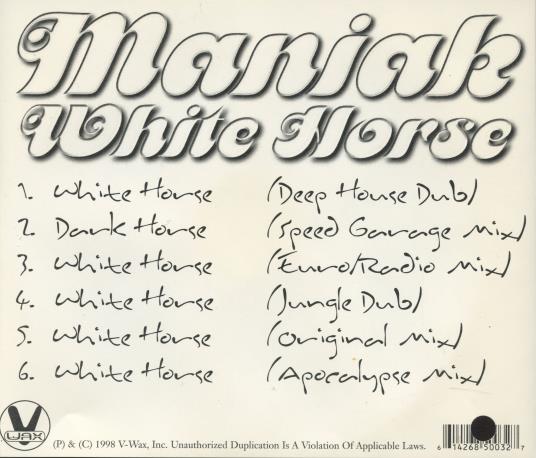 Maniak
White Horse
1. White Horse (Deep House Dub)
2. Dark Horse (Speed Garage Mix)
3. White Horse (Euro/Radio Mix)
4. White Horse (Jungle Dub)
5. White Horse (Original Mix)
6. White Horse (Apocalypse Mix)
V
WAX
(P) & (C) 1998 V-Wax, Inc. Unauthorized Duplication Is A Violation Of Applicable Laws.
6 14268 50032 7